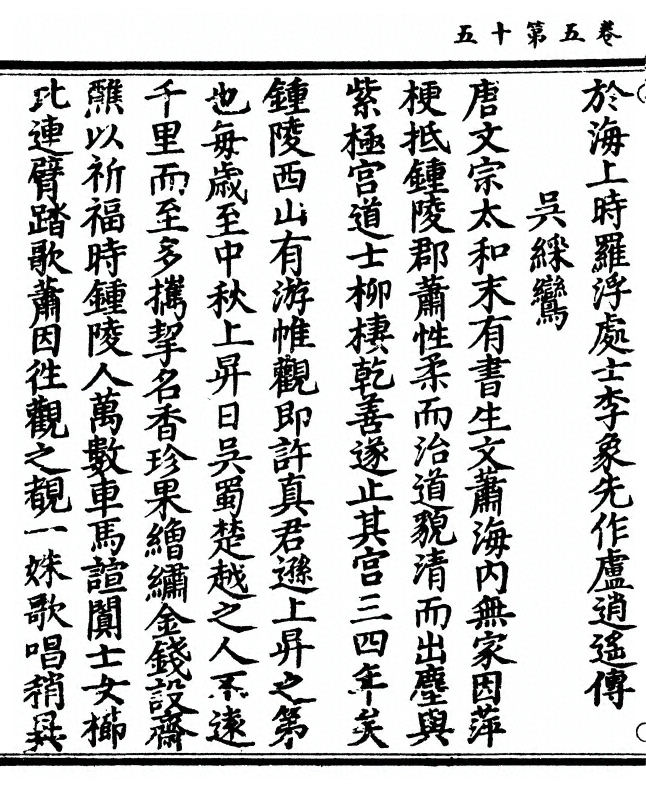 卷五第十五
於海上時羅浮處士李象先作盧逍遙傳
吳綵鸞
唐文宗太和末有書生文蕭海內無家因萍
梗抵鍾陵郡蕭性柔而治道貌清而出塵與
紫極宮道士柳棲乾善遂止其宮三四年矣
鍾陵西山有游帷觀即許真君遜上昇之第
也每歲至中秋上昇日吳蜀楚越之人不遠
千里而至多攜挈名香珍果繒繡金錢設齋
醮以祈福時鍾陵人萬數車馬諠闐士女櫛
比連臂踏歌蕭因徃觀之覩一姝歌唱稍異